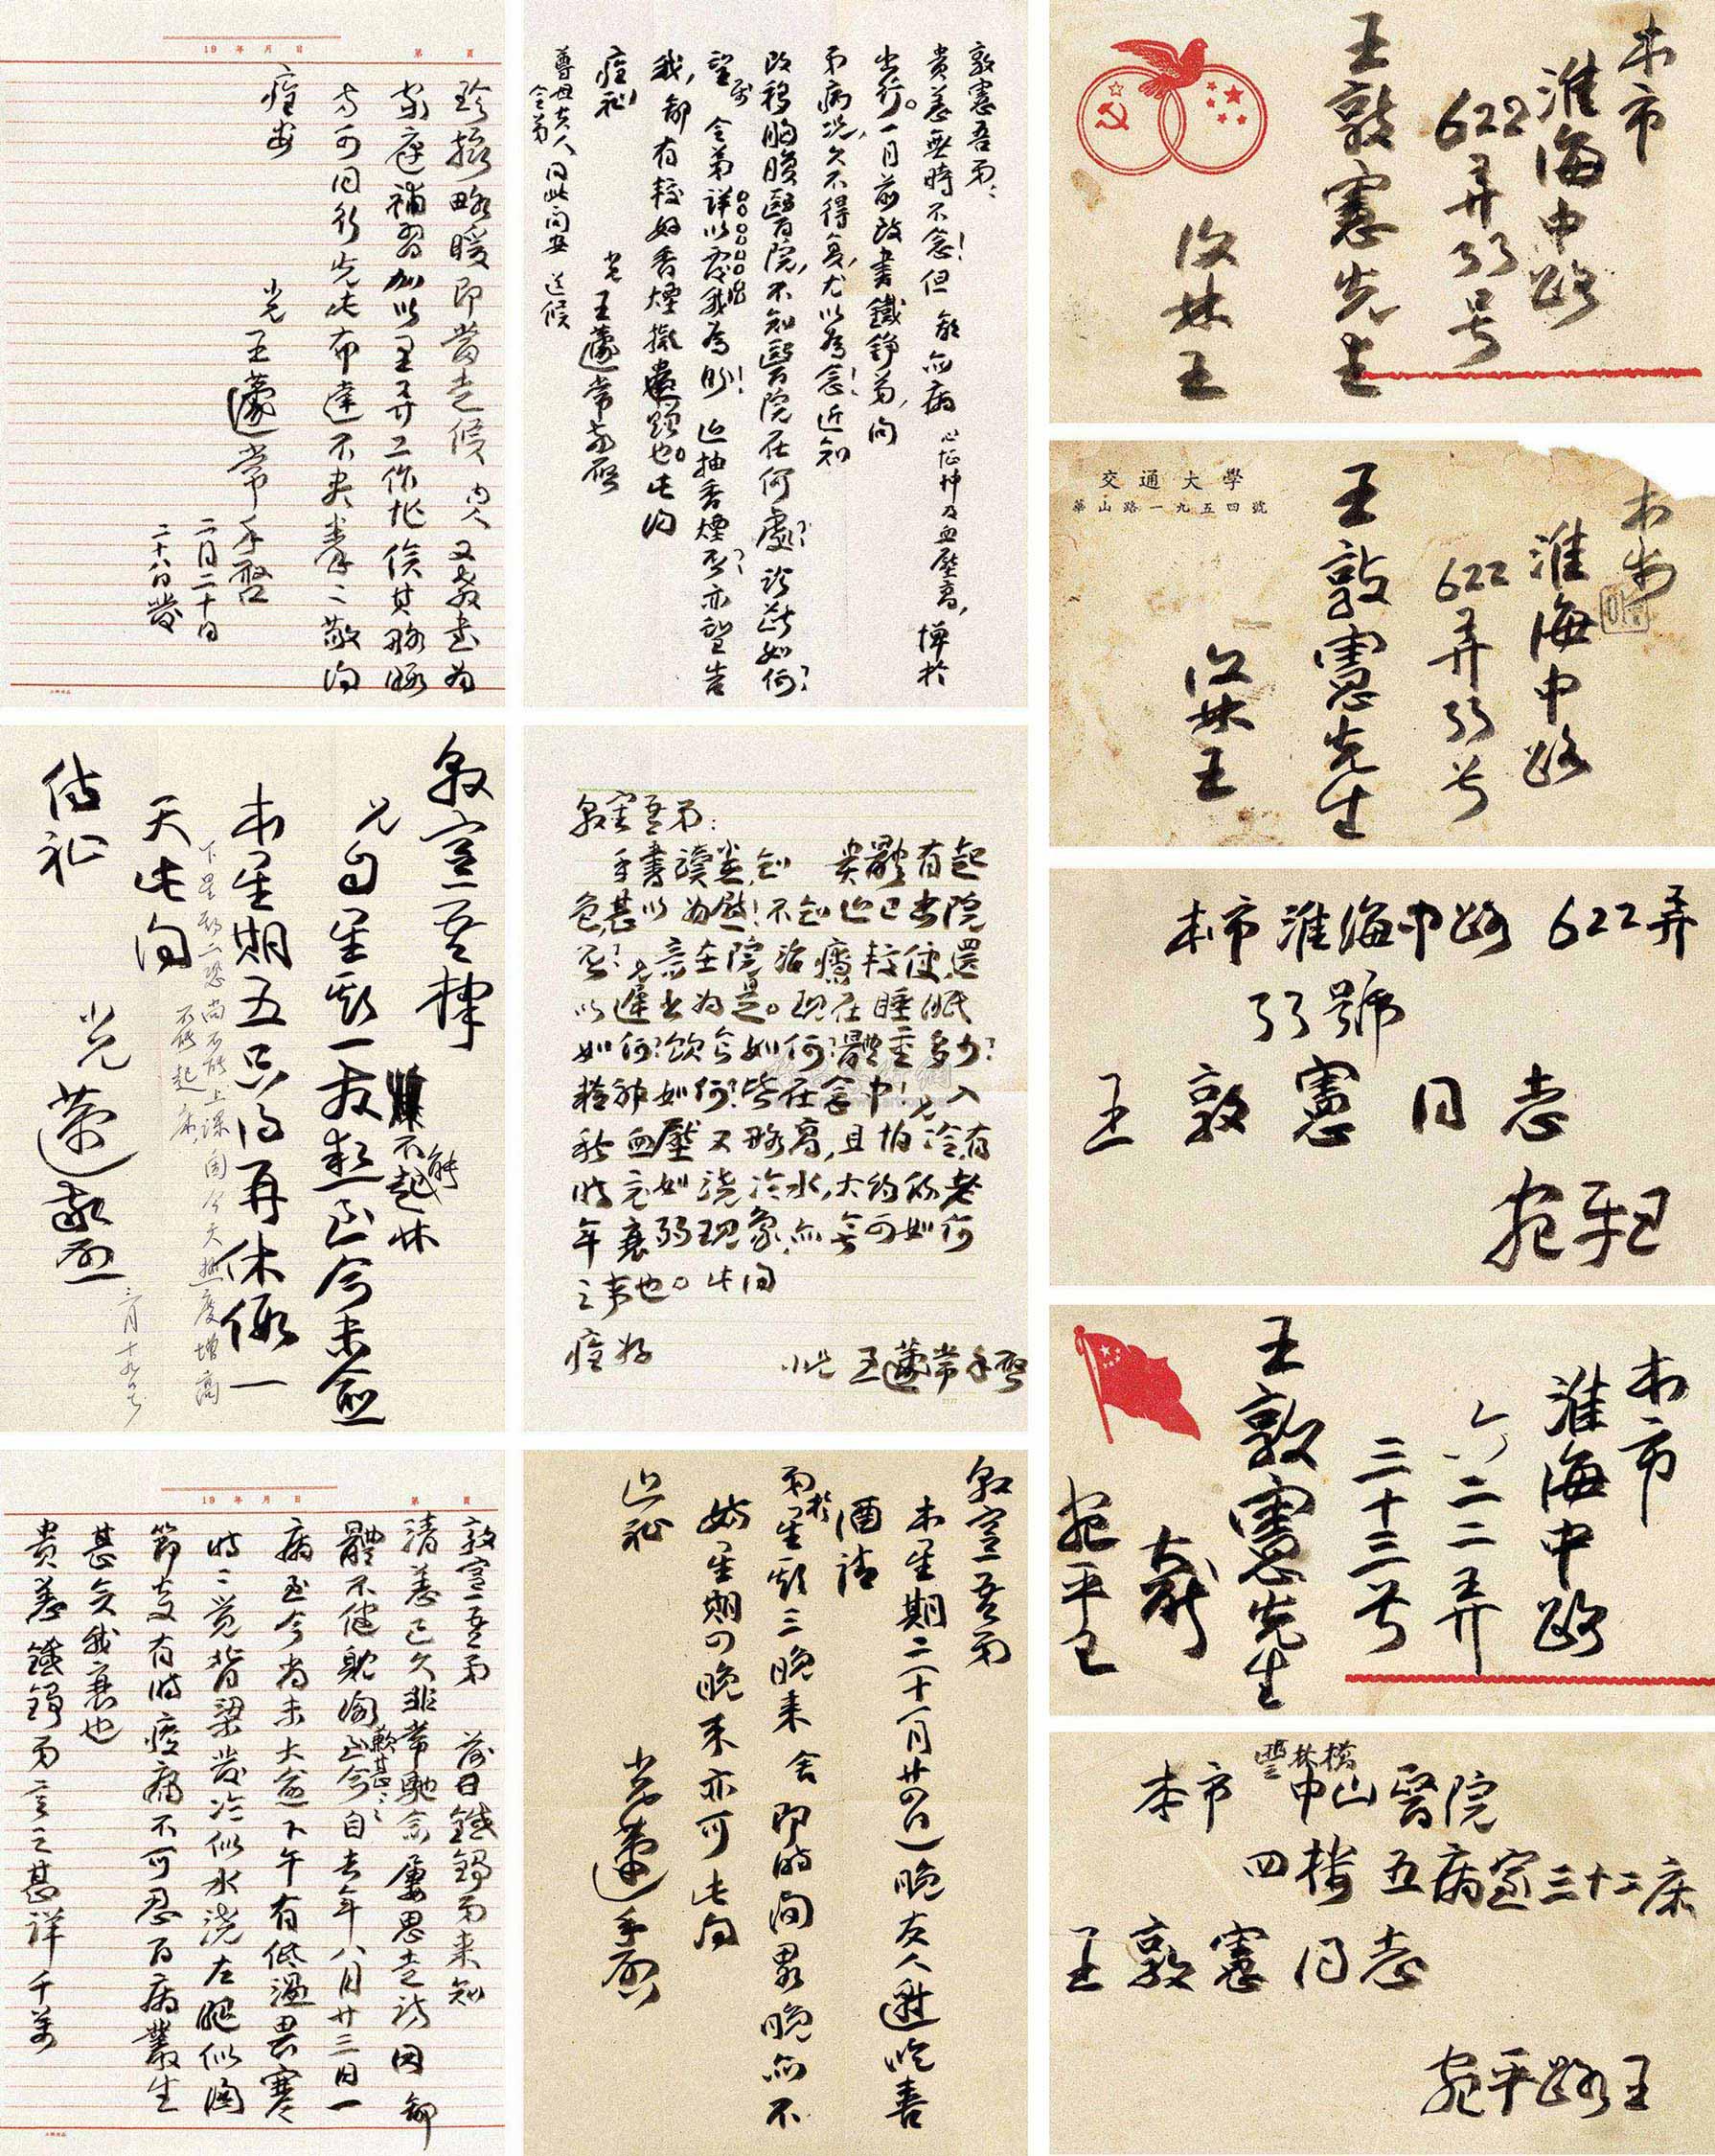 19 年 月 日
第 頁
珍攝略暖即當走候內人又養書為
家庭補習加以里弄工作忙俟其略暇
方可同行先此布達不盡〻敬問
痊安
小兄王蘧常手啓
二月二十日
二十八日發
敦憲吾弟：
貴恙無時不念！但 鄙亦病心怔忡及血壓高，憚於
出行。一月前改書鐵錚弟，問
弟病況，久不得復，尤以為念！近知
改移胸腹醫院，不知醫院在何處？診斷如何？
望 令弟詳以覆我為盼！近抽香煙否？亦望告
我，鄙有較好香煙擬貽也。此問
痊祉
小兄王蘧常啓
尊母大人
令弟 同此問安 送候
敦憲吾棣
兄自星期一發熱至今未愈
不能起牀
本星期五只得再休假一
天此問
下星期二恐尚不能上課因今天熱度增高
不能起床
侍祉
小兄蘧啟
三月十九日
敦憲吾弟：
手書讀悉，知 貴體有起
色，甚以為慰！不知近已出院
否？兄意在院治療較便，還
以遲出為是。現在睡眠
如何？飲食如何？體重多少？
精神如何？皆在念中！兄入
秋血壓又略高，且怕冷，有
時竟如澆冷水，大約為老
年衰弱現象，亦無可如何
之事也。此問
痊好
小兄 王蘧常手啓
19 年 月 日
第 頁
敦憲吾弟 前日鐵錚弟來知
清恙已久非常馳念屢思走訪因鄙
體不健
軟甚〻
至今自去年八月廿三日一
病至今尚未大愈下午有低溫畏寒
時〻覺背梁發冷似水澆左腿似關
節炎有時痠痛不可忍百病叢生
甚矣我衰也
貴恙鐵錚弟言之甚詳千萬
敦憲吾弟
本星期二十一月廿四日晚友人邀吃喜
酒請
弟於星期三晚來 舍即時間略晚亦不
妨星期四晚來亦可此問
近祉
小兄蘧手啟
本市
淮海中路
622弄33号
王敦憲先生
汶林王
交通大學
華山路一九五四號
本市
淮海中路
622弄33号
王敦憲先生
汶林王
本市淮海中路 622弄
33號
王敦憲同志
宛平王
本市
淮海中路
六二二弄
三十三号
王敦憲先生
大啟
宛平王
本市 楓林橋
中山醫院
四樓五病室三十二床
王敦憲同志
宛平路王